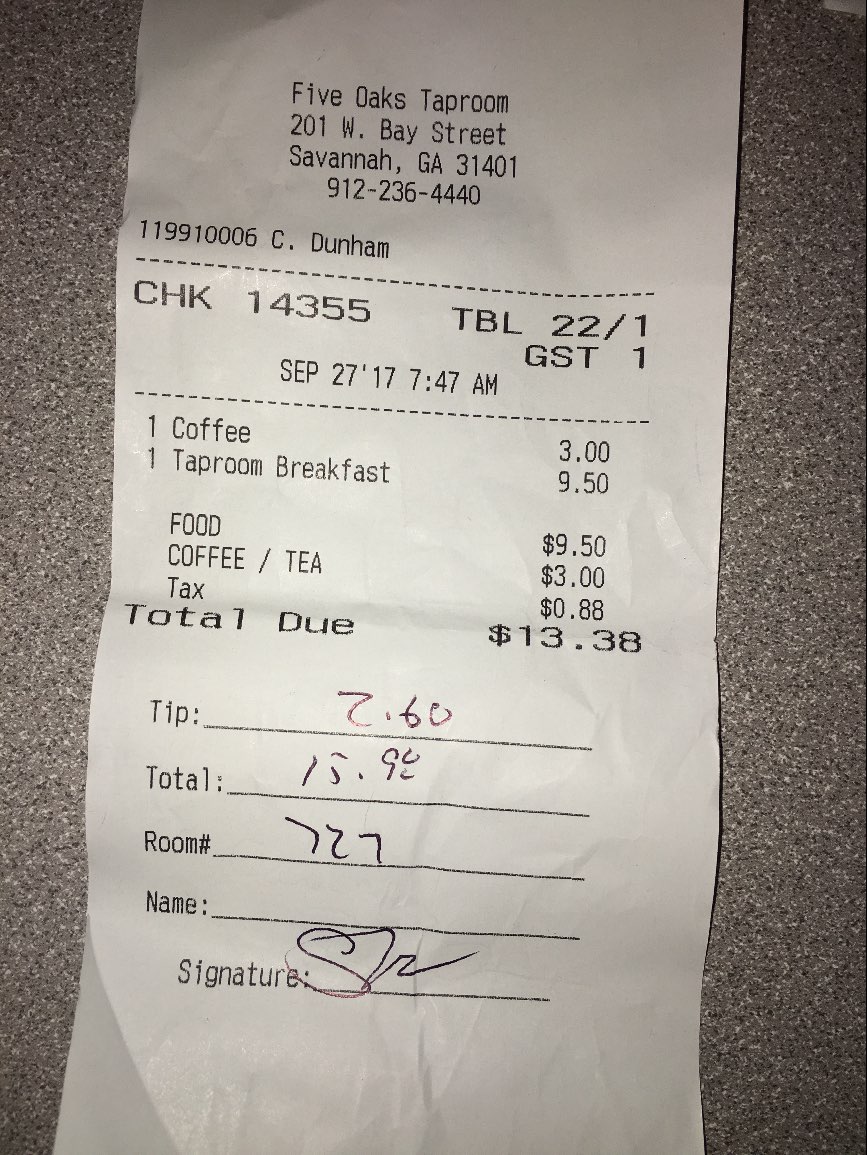 Five Oaks Taproom
201 W. Bay Street
Savannah, GA 31401
912-236-4440
119910006 C. Dunham
CHK 14355 TBL 22/1
GST 1
SEP 27'17 7:47 AM
1 Coffee 3.00
1 Taproom Breakfast 9.50
FOOD $9.50
COFFEE / TEA $3.00
Tax $0.88
Total Due $13.38
Tip: 2.60
Total: 15.98
Room# 727
Name:
Signature: